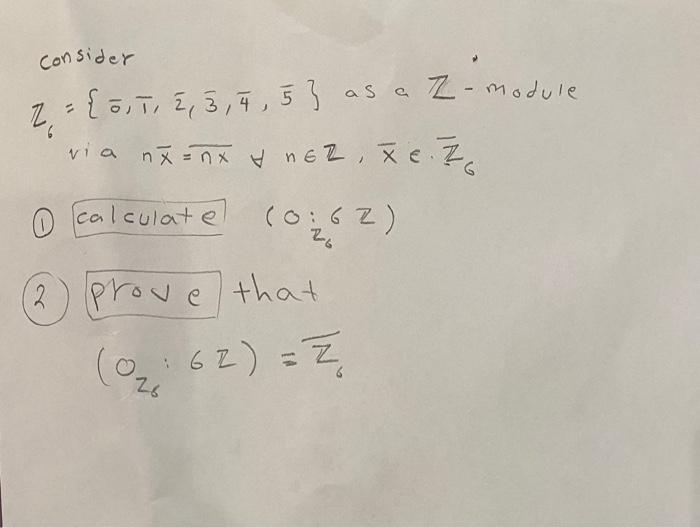 consider
Z₆ = { 0̅, 1̅, 2̅, 3̅, 4̅, 5̅ } as a ℤ - module
via nx̅ = n̅x̅ ∀ n ∈ ℤ, x̅ ∈ . Z̅₆
① calculate (0 :_Z₆ 6Z)
② prove that
(0_Z₆ : 6Z) = Z̅₆